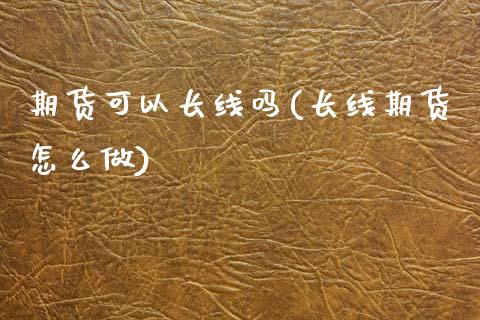 期货可以长线吗(长线期货
怎么做)